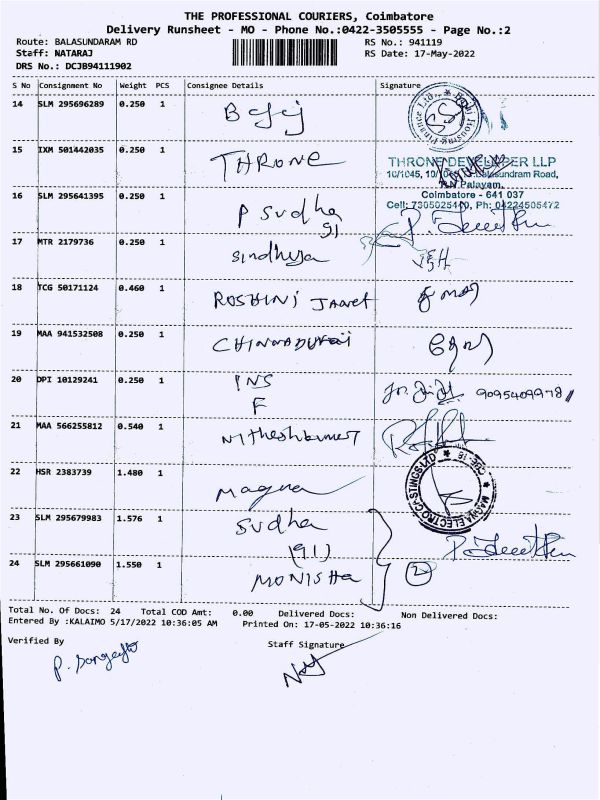 THE PROFESSIONAL COURIERS, Coimbatore
Delivery Runsheet - MO - Phone No.:0422-3505555 - Page No.:2
Route: BALASUNDARAM RD
RS No.: 941119
Staff: NATARAJ
RS Date: 17-May-2022
DRS No.: DCJB94111902
S No Consignment No Weight PCS Consignee Details Signature
14 SLM 295696289 0.250 1
15 IXM 501442035 0.250 1 THRONE
THRONE DEVELOPER LLP
10/1045, Balasundram Road,
Palayam,
Coimbatore - 641 037
16 SLM 295641395 0.250 1 P Sudha
91
17 MTR 2179736 0.250 1 Sindhuja
18 TCG 50171124 0.460 1 ROSHINI
19 MAA 941532508 0.250 1 CHINNADURAI
20 DPI 10129241 0.250 1 INS
F
21 MAA 566255812 0.540 1 Nitheshkumar
22 HSR 2383739 1.480 1 Magna
MAGNA ELECTRO CASTINGS LTD
CBE-18
23 SLM 295679983 1.576 1 Sudha
(91)
24 SLM 295661090 1.550 1 MONISHA
2
Total No. Of Docs: 24 Total COD Amt: 0.00 Delivered Docs: Non Delivered Docs:
Entered By :KALAIMO 5/17/2022 10:36:05 AM Printed On: 17-05-2022 10:36:16
Verified By
Staff Signature